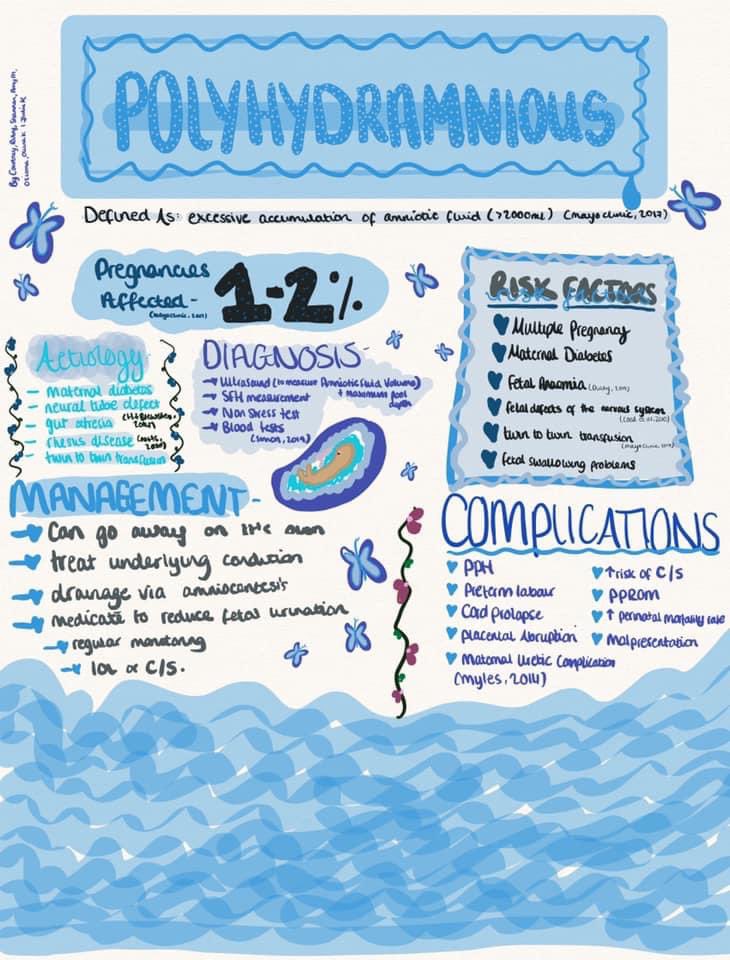 POLYHYDRAMNIOUS
Defined As: excessive accumulation of amniotic fluid (>2000ml) (mayo clinic, 2017)
Pregnancies
Affected -
1-2%
Aetiology
- maternal diabetes
- neural tube defect
- gut atresia
- rhesus disease
- twin to twin transfusion
DIAGNOSIS -
Ultrasound (to measure Amniotic fluid Volume)
+ maximum pool
depth
SFH measurement
Non Stress test
Blood tests
(Simon, 2019)
RISK FACTORS
Multiple Pregnancy
Maternal Diabetes
Fetal Anaemia
fetal defects of the nervous system
twin to twin transfusion
(mayo clinic, 2017)
fetal swallowing problems
MANAGEMENT -
Can go away on its own
treat underlying condition
drainage via amniocentesis
medicate to reduce fetal urination
regular monitoring
IOL or C/S.
COMPLICATIONS
PPH
Preterm labour
Cord prolapse
placental Abruption
Maternal Uretic Complication
(myles, 2014)
↑ risk of C/S
PPROM
↑ perinatal mortality rate
Malpresentation